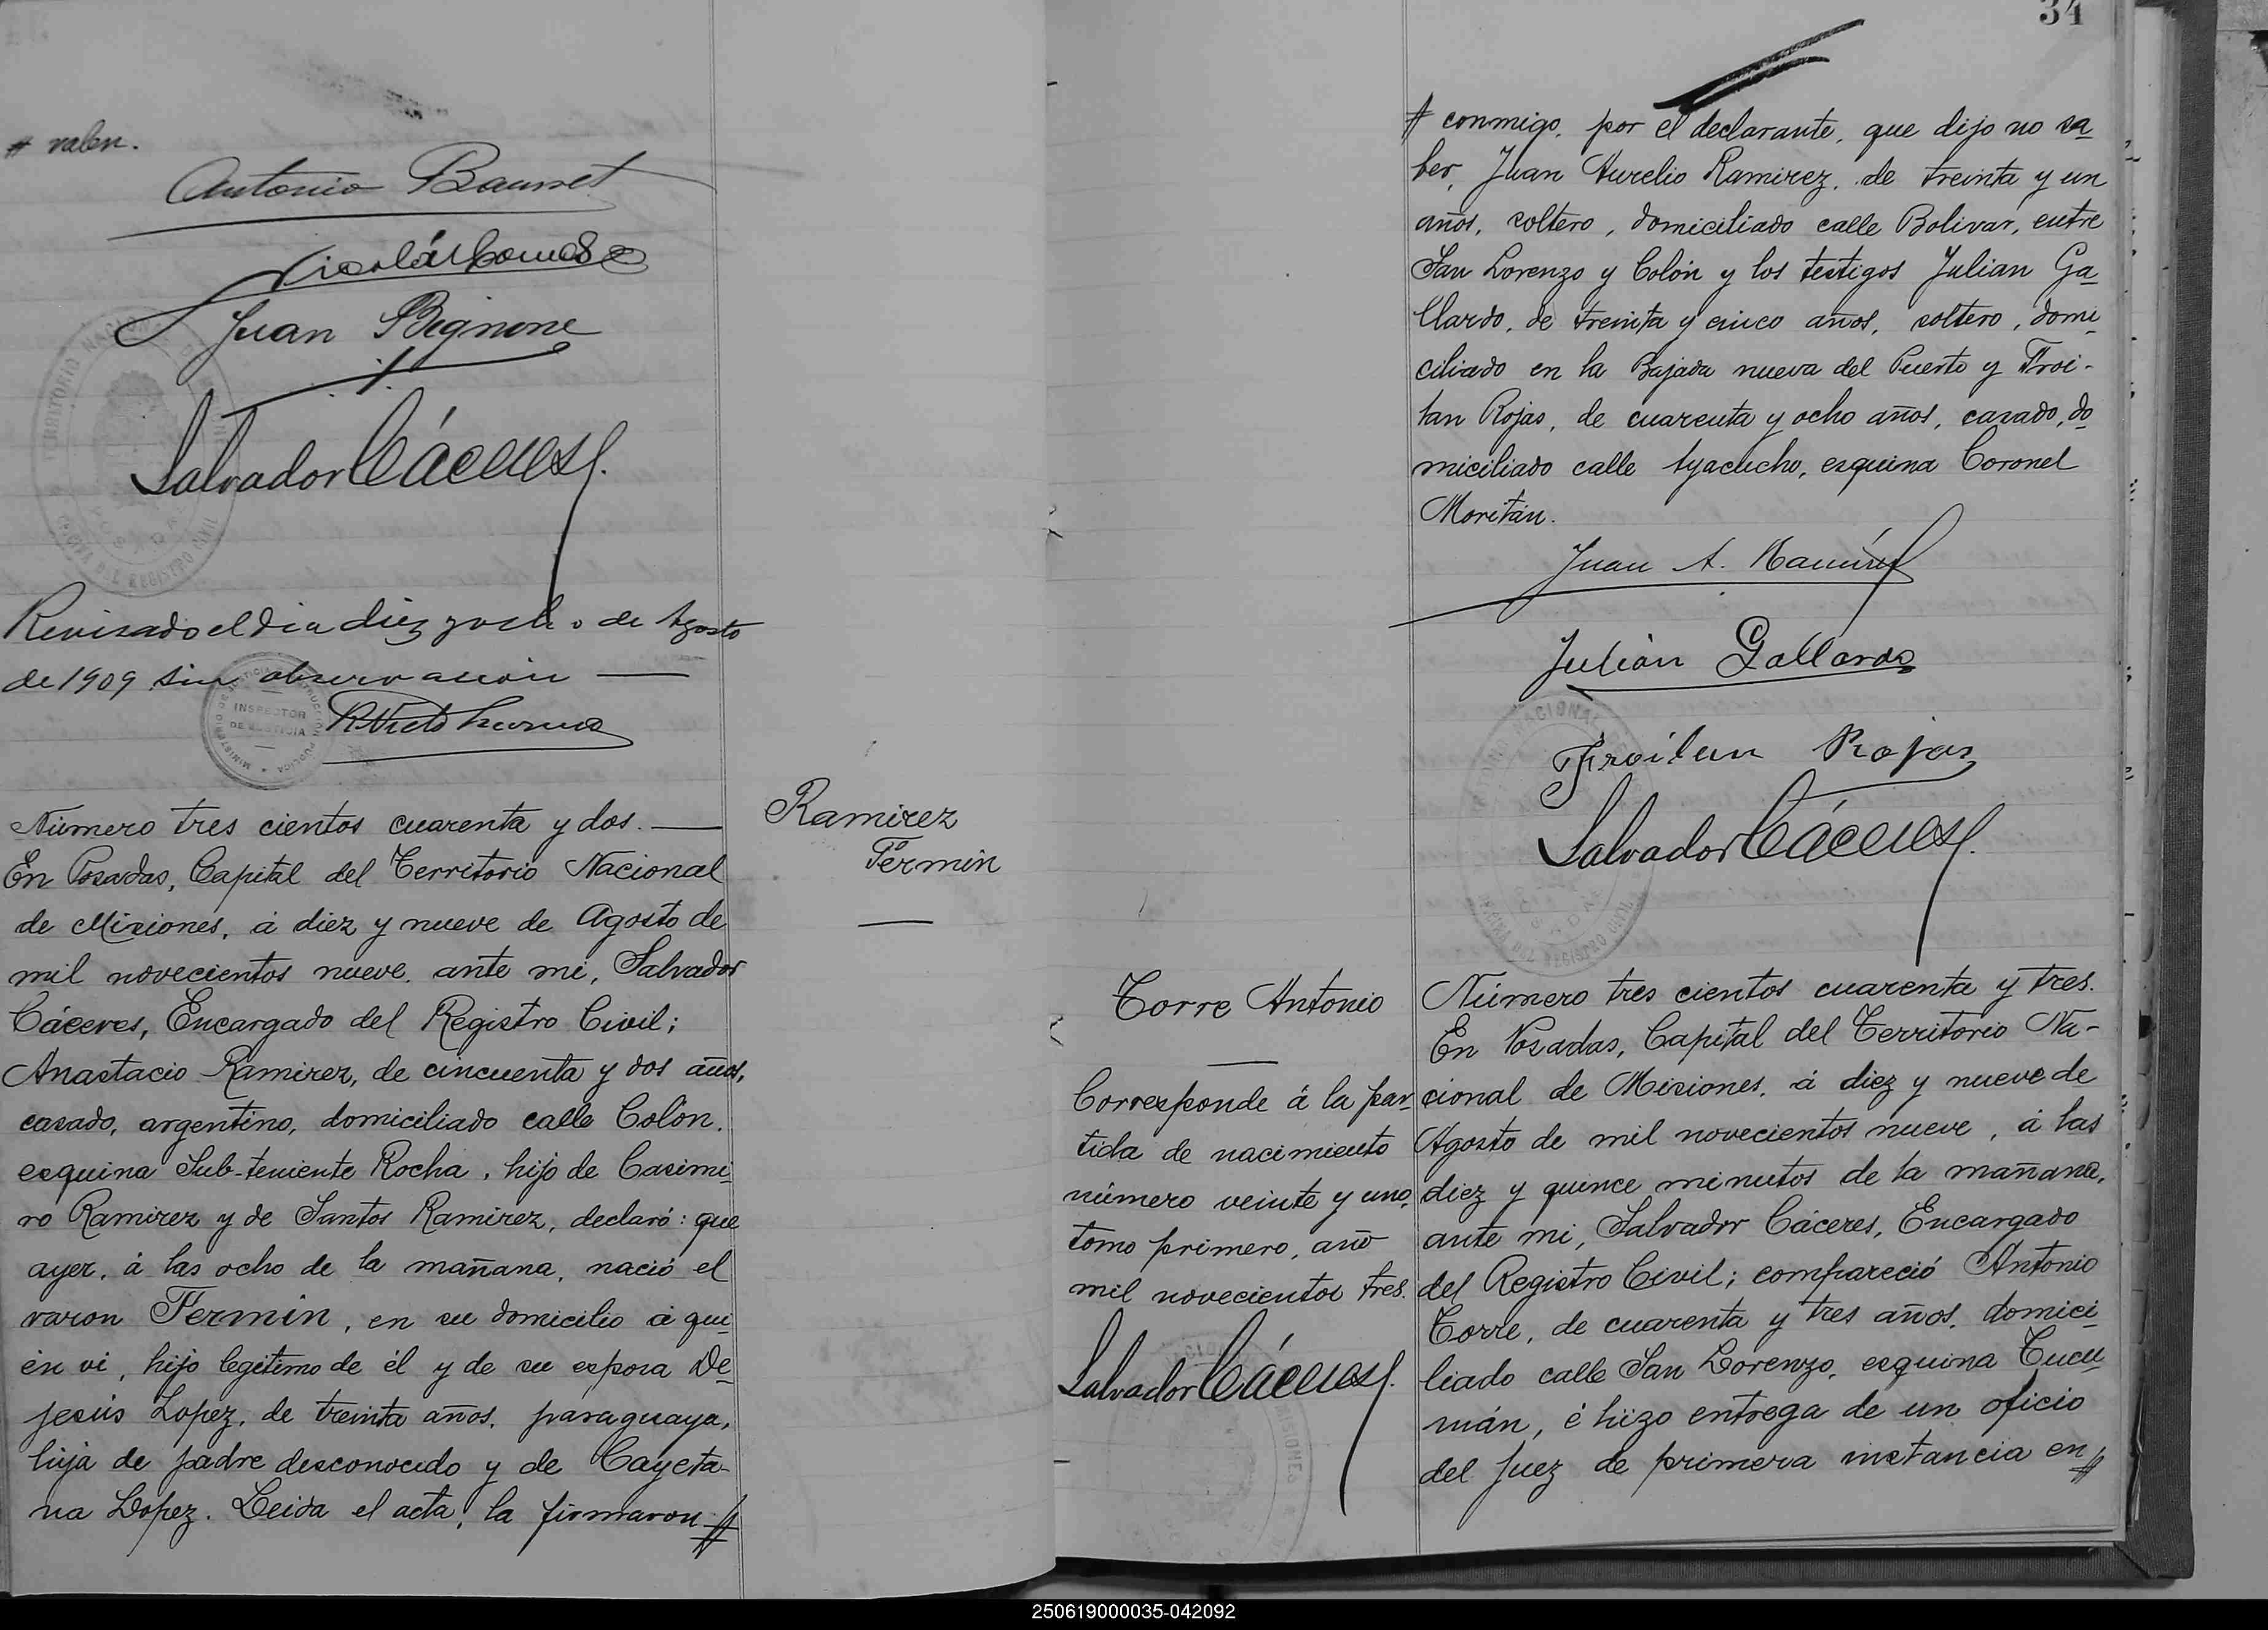 # valen.
Antonio Bausset
Nicolás
Juan Bignone
Salvador Cáceres
Revisado el dia diez y ocho de Agosto
de 1909 sin observacion
INSPECTOR
DE JUSTICIA
Número tres cientos cuarenta y dos.
En Posadas, Capital del Territorio Nacional
de Misiones, á diez y nueve de Agosto de
mil novecientos nueve. ante mi, Salvador
Cáceres, Encargado del Registro Civil;
Anastacio Ramirez, de cincuenta y dos años,
casado, argentino, domiciliado calle Colón,
esquina Sub-teniente Rocha, hijo de Casimi-
ro Ramirez y de Santos Ramirez, declaró: que
ayer, á las ocho de la mañana, nació el
varon Fermin, en su domicilio á qui-
én vi, hijo legítimo de él y de su esposa De-
jesús Lopez, de treinta años, paraguaya,
hija de padre desconocido y de Cayeta-
na Lopez. Leida el acta, la firmaron #
Ramirez
Fermin
34
# conmigo, por el declarante, que dijo no sa-
ber, Juan Aurelio Ramirez, de treinta y un
años, soltero, domiciliado calle Bolivar, entre
San Lorenzo y Colón y los testigos Julian Ga-
llardo, de treinta y cinco años, soltero, domi-
ciliado en la Bajada nueva del Puerto y Froi-
lan Rojas, de cuarenta y ocho años, casado, do-
miciliado calle Ayacucho, esquina Coronel
Moritán.
Juan A. Ramírez
Julián Gallardo
Froilan Rojas
Salvador Cáceres
Torre Antonio
Corresponde á la par-
tida de nacimiento
número veinte y uno,
tomo primero, año
mil novecientos tres.
Salvador Cáceres
Número tres cientos cuarenta y tres.
En Posadas, Capital del Territorio Na-
cional de Misiones, á diez y nueve de
Agosto de mil novecientos nueve, á las
diez y quince minutos de la mañana,
ante mi, Salvador Cáceres, Encargado
del Registro Civil; compareció Antonio
Torre, de cuarenta y tres años, domici-
liado calle San Lorenzo, esquina Tucu-
mán, é hizo entrega de un oficio
del Juez de primera instancia en #
250619000035-042092